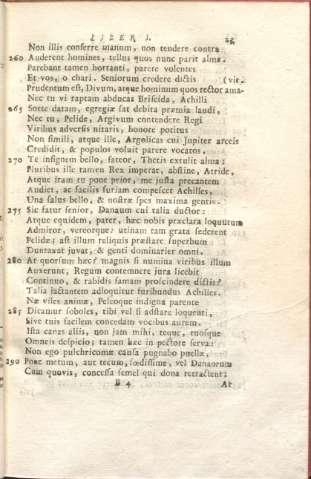 LIBER I. 25
Non illis conferre manum, non tendere contra
260 Auderent homines, tellus quos nunc parit alma.
Parebant tamen hortanti, parere volentes
Et vos, o chari. Seniorum credere dictis (vir.
Prudentum est, Divum, atque hominum quos rector ama-
Nec tu vi raptam abducas Briseida, Achilli
265 Sorte datam, egregiæ sat debita præmia laudi,
Nec tu, Pelide, Argivum contendere Regi
Viribus adversis nitaris, honore potitus
Non simili, atque ille, Argolicas cui Jupiter arceis
Credidit, & populos voluit parere vocatos.
270 Te insignem bello, fateor, Thetis extulit alma:
Pluribus ille tamen Rex imperat, abstine, Atride,
Atque iram tu pone prior, me justa precantem
Audiet, ac facilis furiam compescet Achilles,
Una salus bello, & nostræ spes maxima gentis.
275 Sic fatur senior, Danaum cui talia ductor:
Atque equidem, pater, hæc nobis præclara loquutum
Admiror, vereorque: utinam tam grata sederent
Pelidæ; ast illum reliquis præstare superbum
Dumtaxat juvat, & genti dominarier omni.
280 At quorsum hæc? magnis si numina viribus illum
Auxerunt, Regum contemnere jura licebit
Continuo, & rabidis famam proscindere dictis?
Talia jactantem adloquitur furibundus Achilles.
Næ viles animæ, Peleoque indigna parente
285 Dicamur soboles, tibi vel si adstare loquenti,
Sive tuis facilem concedam vocibus aurem.
Ista canas aliis, non jam mihi, teque, tuosque
Omneis despicio; tamen hæc in pectore serva:
Non ego pulchricomæ causa pugnabo puellæ,
290 Pone metum, aut tecum, fœdissime, vel Danaorum
Cum quovis, concessa semel qui dona retractent:
B 4 At